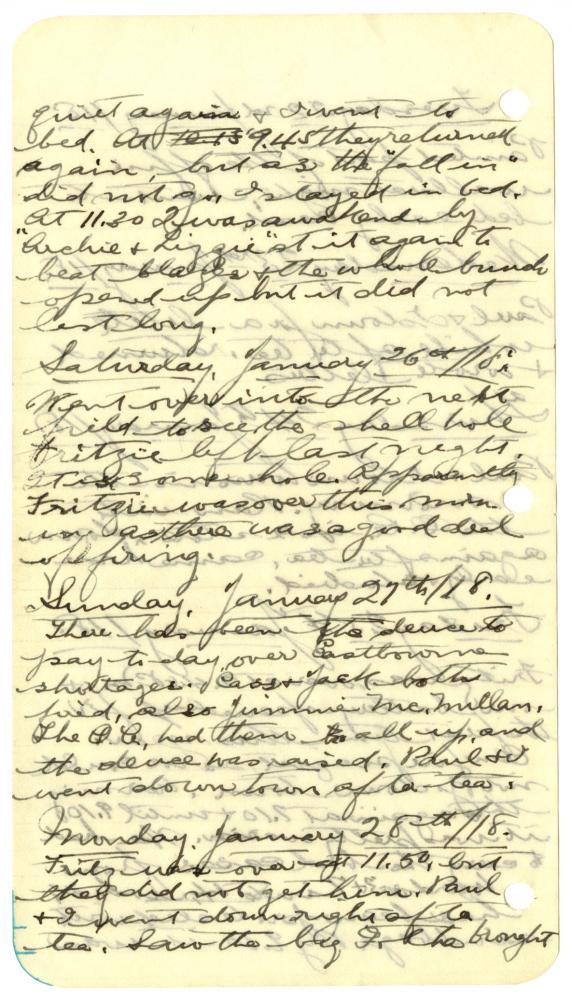 quiet again & I went to
bed. At 10.15 9.45 they returned
again, but as the "fall in"
did not go, I stayed in bed.
At 11.30 I was awakened by
"Archie & Lizzie" at it again to
beat blazes & the whole bunch
opened up but it did not
last long.
Saturday, January 26th/18.
Went over into the next
field to see the shell hole
Fritzie left last night.
It is some hole. Apparently
Fritzie was over this morn
ing as there was a good deal
of firing.
Sunday, January 27th/18.
There has been the deuce to
pay to-day over Eastbourne
shortages. Cass & Jack both
tried, also Jimmie McMillan.
The O.C. had them all up, and
the deuce was raised. Paul & I
went down town after tea.
Monday, January 28th/18.
Fritz was over at 11.50, but
they did not get him. Paul
& I went down right after
tea. Saw the big brought